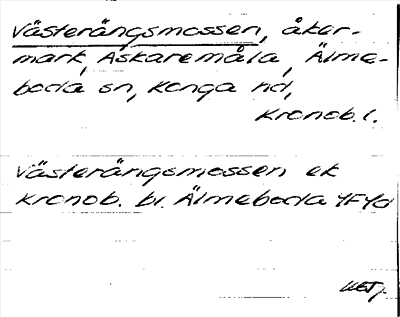 Västerängsmossen, åker-
mark, Askaremåla, Älme-
boda sn, Konga hd,
Kronob. l.
Västerängsmossen ek
Kronob. bl. Älmeboda 4F4d